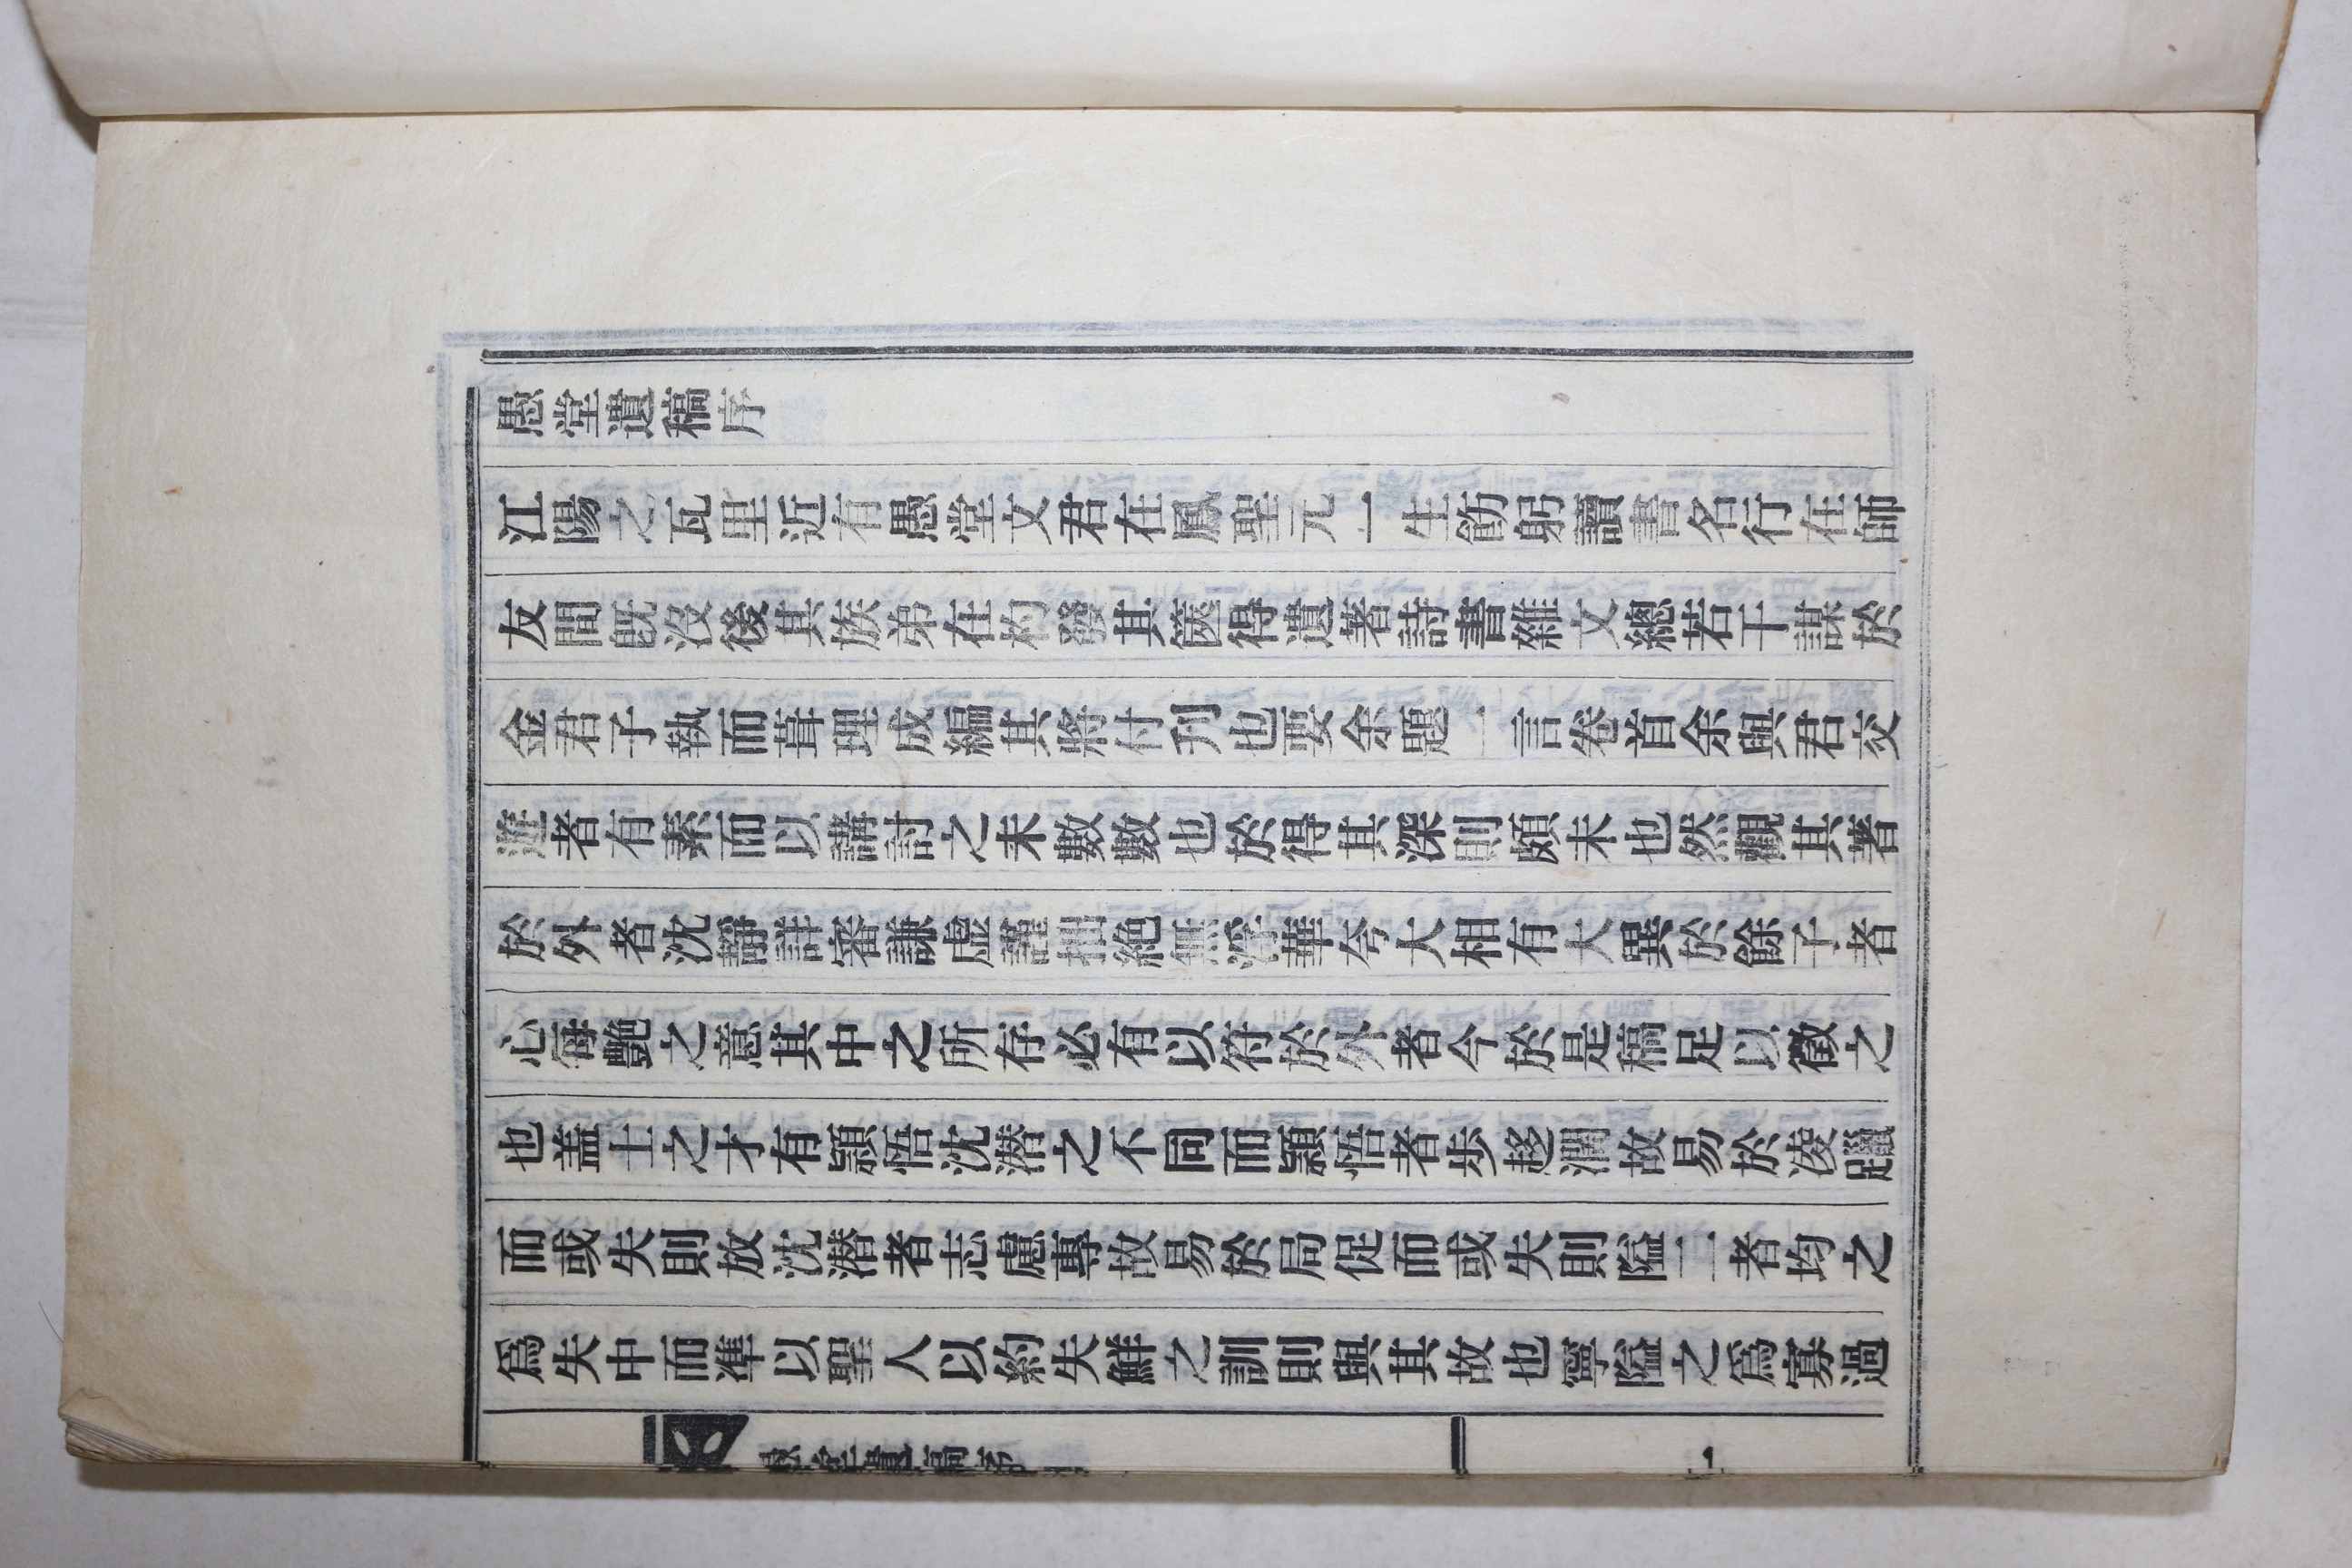 愚堂遺稿序
江陽之瓦里近有愚堂文君在鳳聖元一生飭躬讀書名行在師
友間旣沒後其族弟在杓發其篋得遺著詩書雜文總若干謀於
金君子執而葺理成編其將付刋也要余題一言卷首余與君交
遊者有素而以講討之未數數也於得其深則頗未也然觀其著
於外者沈靜詳審謙虛謹拙絶無浮華夸大相有大異於餘子者
心每艶之意其中之所存必有以符於外者今於是稿足以徵之
也盖士之才有頴悟沈潛之不同而頴悟者步趍濶故易於凌躐
而或失則放沈潛者志慮專故易於局促而或失則隘二者均之
爲失中而準以聖人以約失鮮之訓則與其故也寧隘之爲寡過
愚堂遺稿序
一